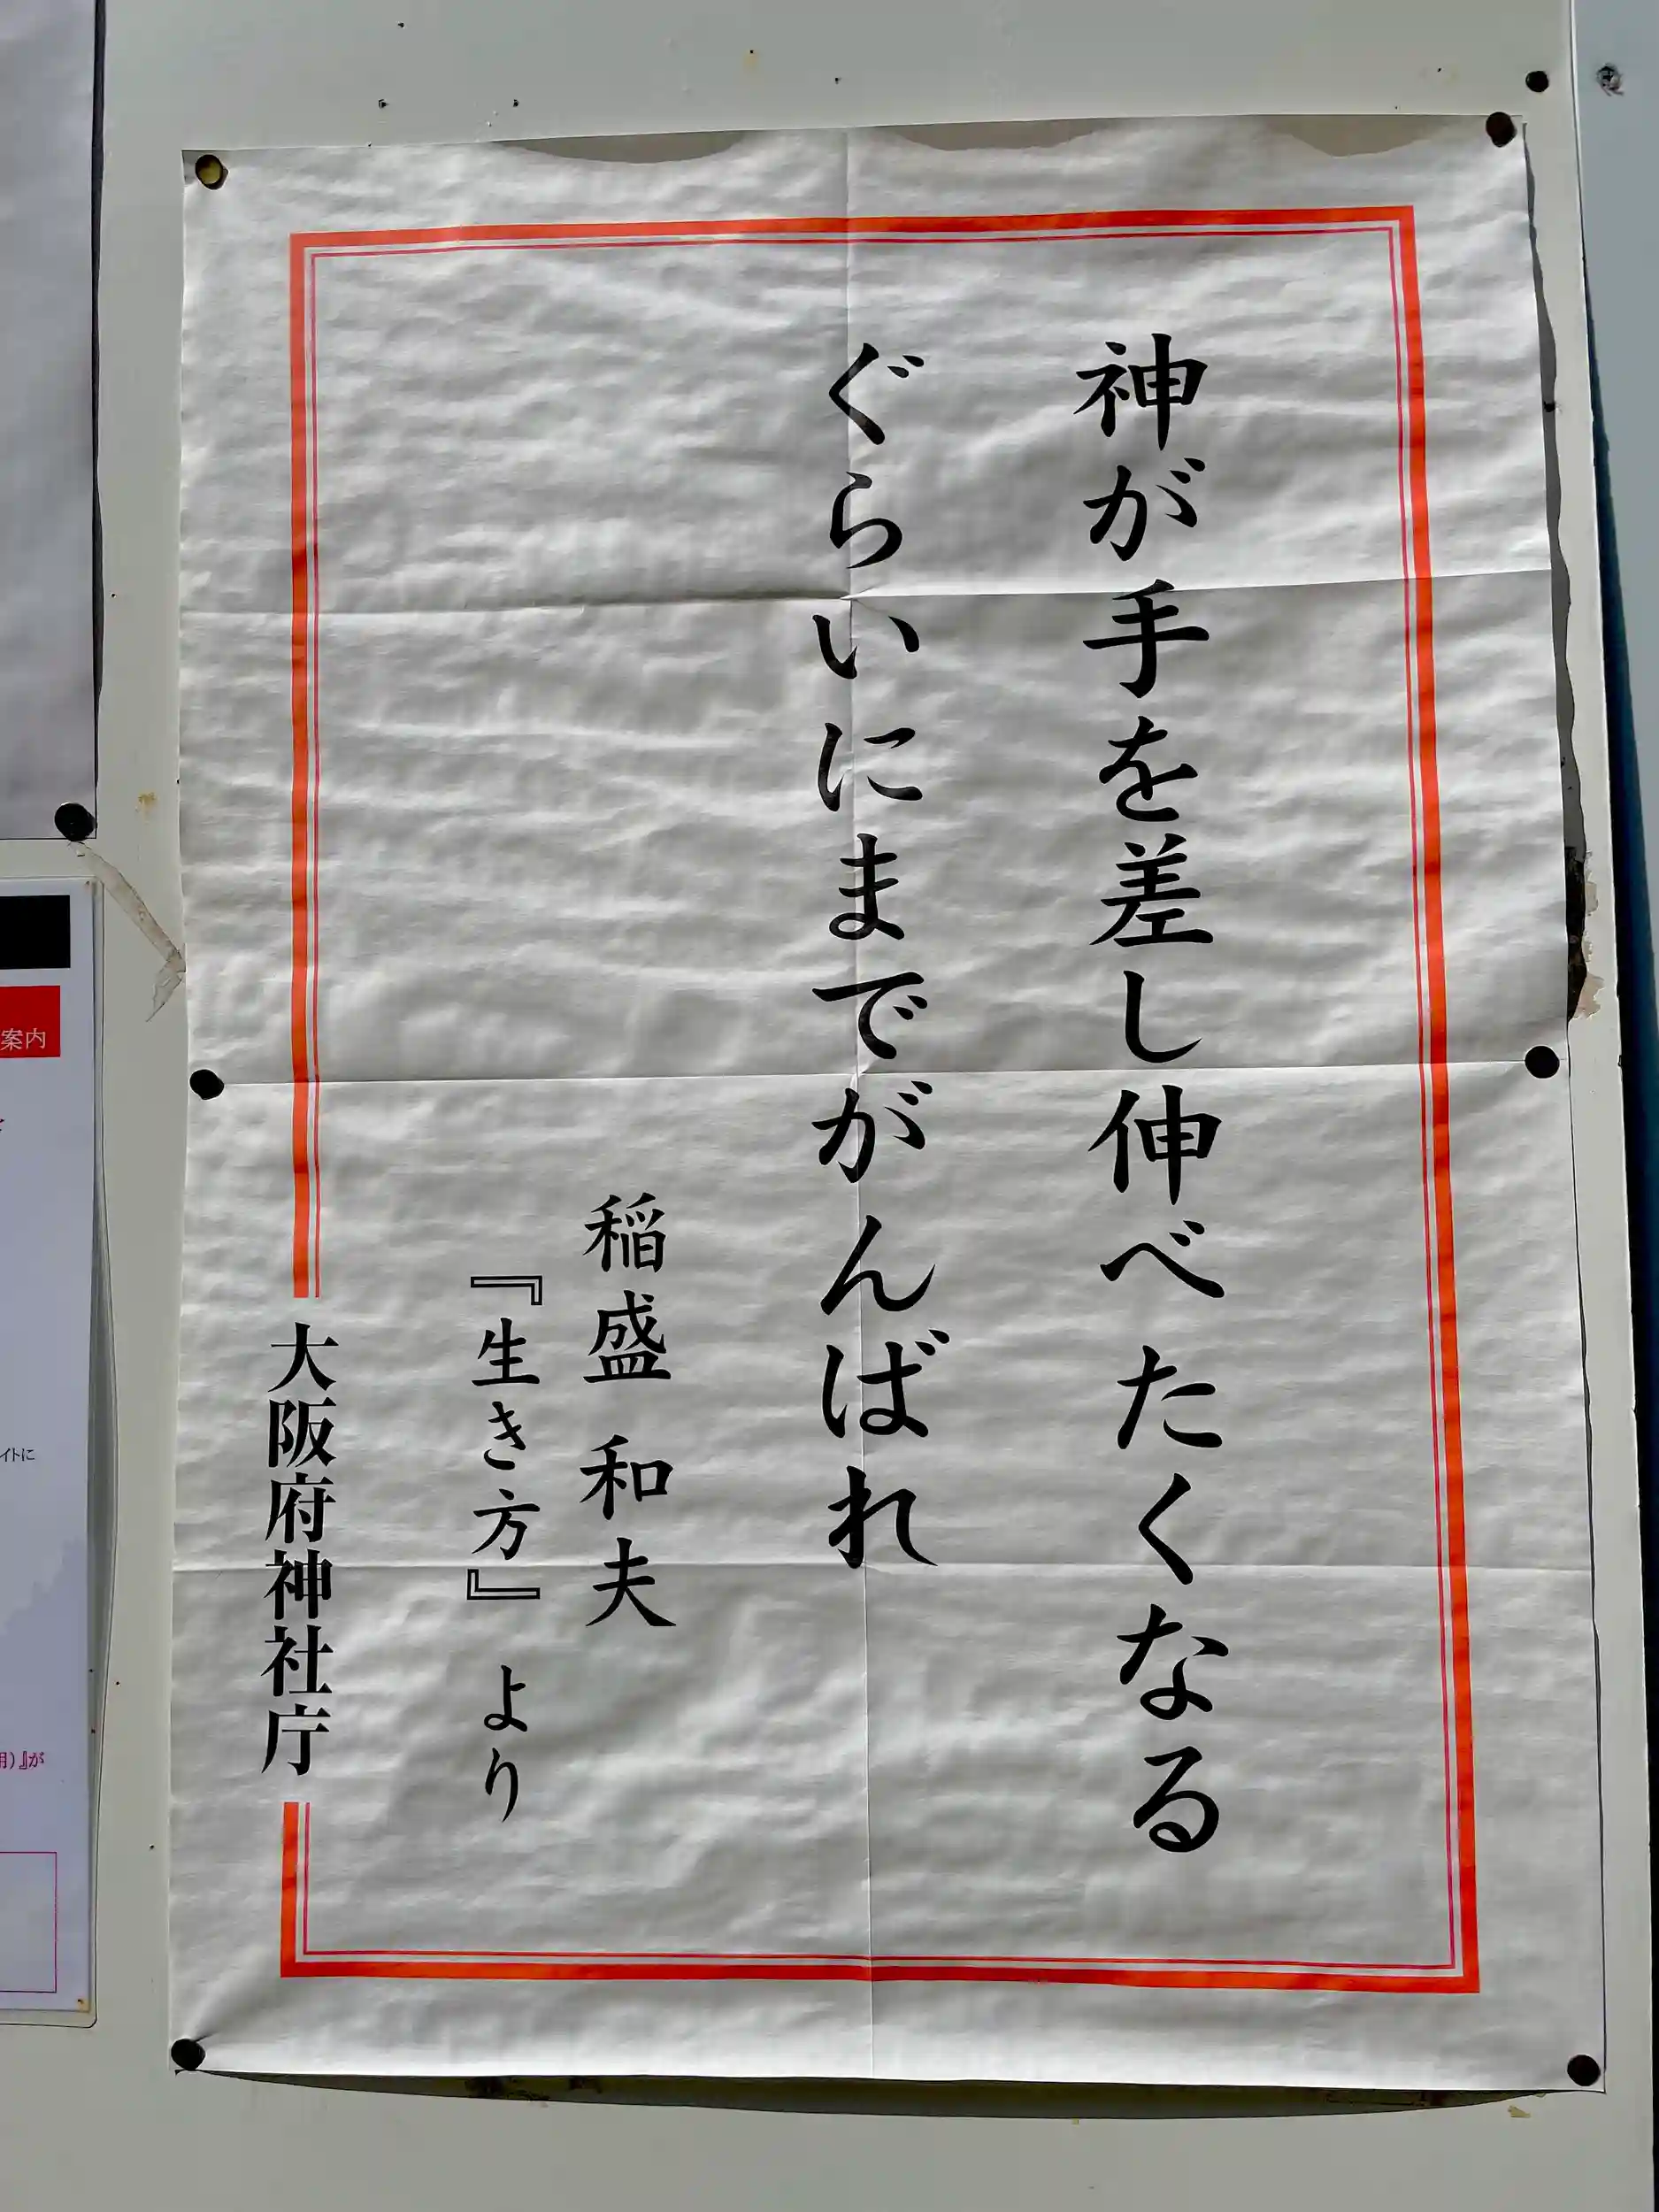 神が手を差し伸べたくなる
ぐらいにまでがんばれ
稲盛和夫
『生き方』より
大阪府神社庁
案内
イトに
用)』が